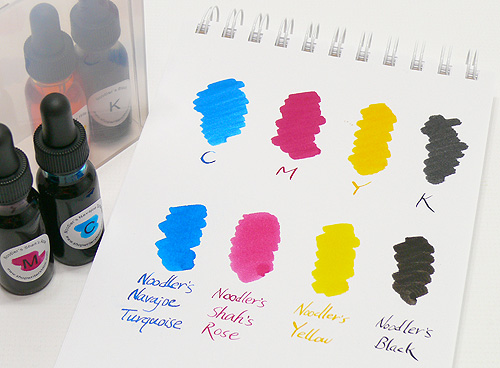 K
C
M
Y
K
C
M
Noodler's
Navajoe
Turquoise
Noodler's
Shah's
Rose
Noodler's
Yellow
Noodler's
Black